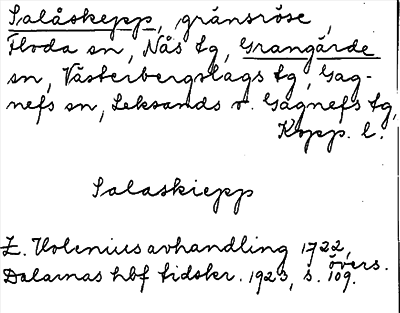 Salåskepp, gränsröse,
Floda sn, Nås tg, Grangärde
sn, Västerbergslags tg, Gag-
nefs sn, Leksands o. Gagnefs tg,
Kopp. l.
Salaskiepp
Z. Holenius avhandling 1722,
övers.
Dalarnas hbf tidskr. 1923, s. 109.